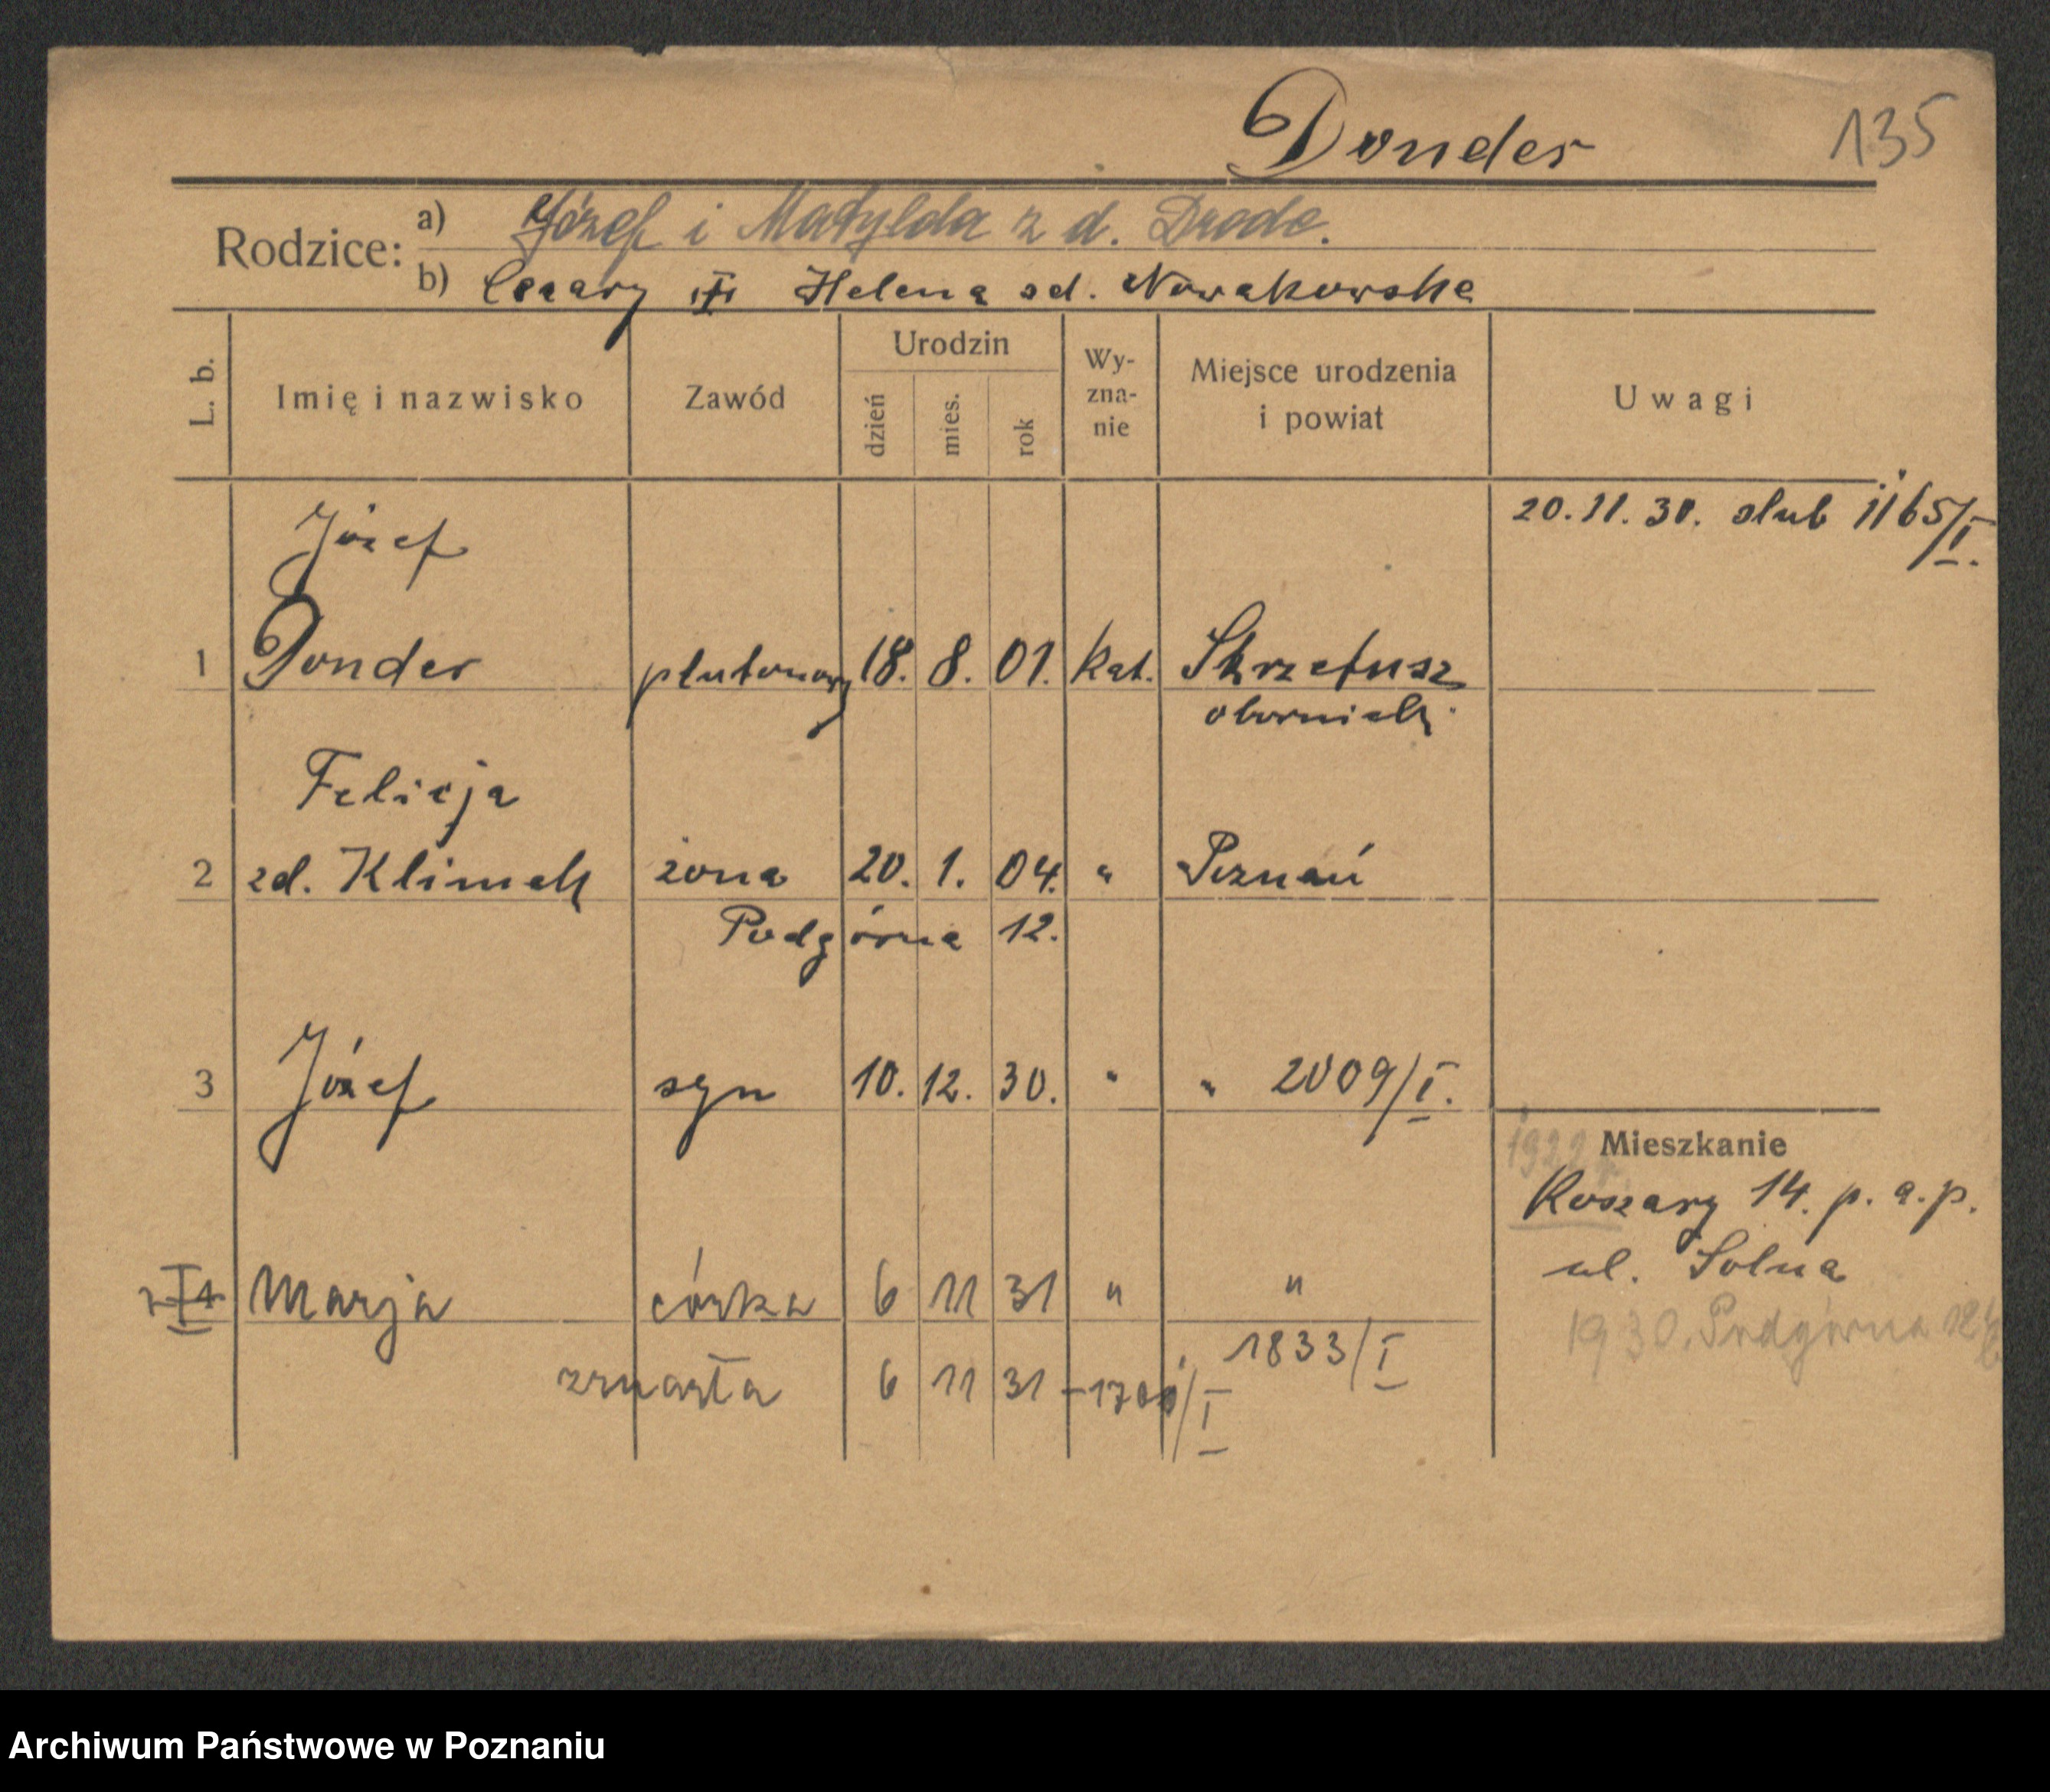 Donder 135
Rodzice: a) Józef i Matylda z d. Drode.
b) Cezary i Helena zd. Nowakowska
L. b. Imię i nazwisko Zawód Urodzin dzień mies. rok Wyznanie Miejsce urodzenia i powiat Uwagi
20.11.30. slub 1165/I.
Józef
1 Donder plutonowy 18. 8. 01. kat. Skrzetusz
obornicki
Felicja
2 zd. Klimek żona 20. 1. 04. " Poznań
Podgórna 12.
3 Józef syn 10. 12. 30. " " 2009/I.
Mieszkanie
1922 r.
Koszary 14. p. a. p.
ul. Solna
4 Marja córka 6 11 31 " "
1930. Podgórna
1833/I
zmarła 6 11 31 - 1700/I
Archiwum Państwowe w Poznaniu